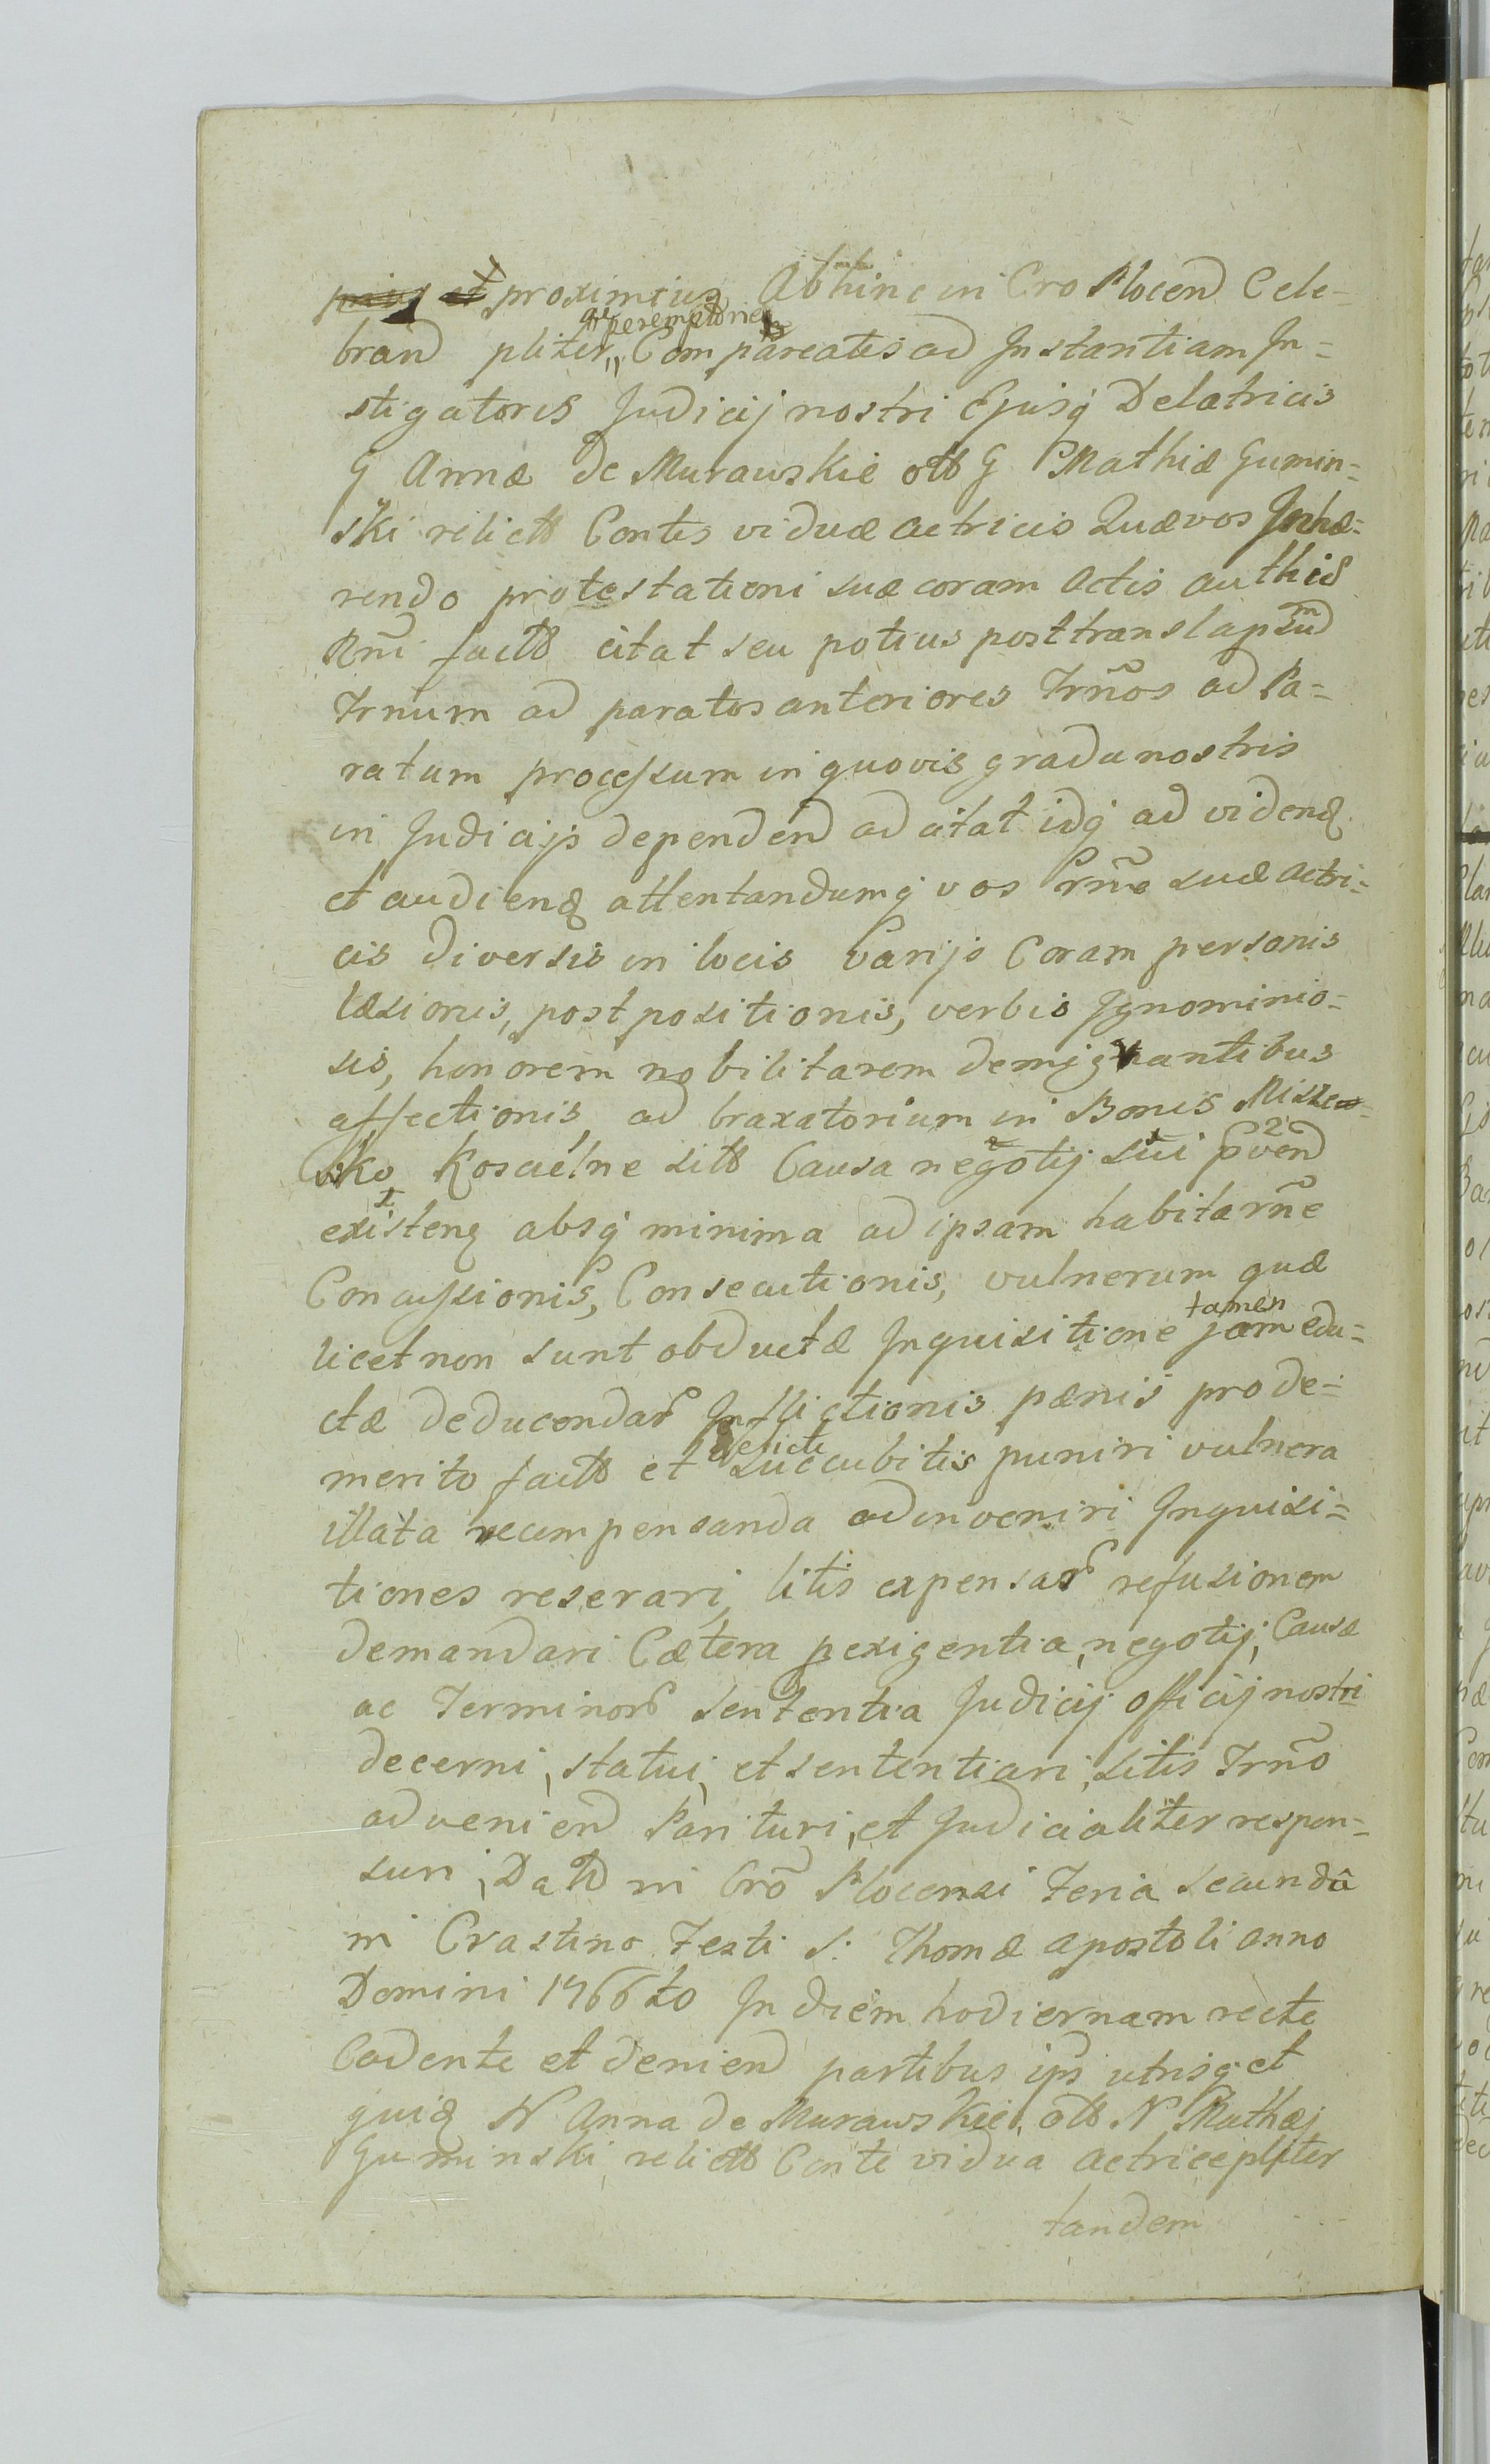 proximius Abhinc in Cro Plocen Cele=
brand pliter, peremptorie Compareatis ad Instantiam In=
stigatoris Judicij nostri Ejusq Delatricis
G Annæ de Murawskie olb G Mathiæ Gumin=
ski relictb Contis viduæ actricis Quævos Inhæ=
rendo protestationi suæ coram Actis authis
Rñi factb citat seu potius post translapsum
Trnum ad paratos anteriores Trños ad Pa=
ratum processum in quovis gradu nostris
in Judicijs dependend adcitat idq ad videnq
et audienq attentandumq vos Prñe suæ actri=
cis diversis in locis varijs Coram personis
læsionis, postpositionis, verbis Ignominio=
sis, honorem nobilitarem denigrantibus
affectionis, ad braxatorium in Bonis Miszew=
sko Koscielne sitb Causa negotij sui pvend
existenq absq minima ad ipsam habita rñe
Concussionis, Consecutionis, vulnerum quæ
licet non sunt obductæ Inquisitione tamen jam edu=
ctæ deducendar Inflictionis pænis pro de=
merito factb et delicti succubitis puniri vulnera
illata recompensanda adinveniri Inquisi=
tiones reserari, litis expensar refusionem
demandari Cætera pexigentia, negotij, Causæ
ac Terminor sententia Judicij officij nostri
decerni, statui, et sententiari, sitis Trño
adveniend Parituri, et Judicialiter respon=
suri, Datb in Crõ Plocensi Feria secundâ
in Crastino Festi S: Thomæ apostoli anno
Domini 1766to In diem hodiernam recte
Cadente et deniend partibus ips utrisq et
quiq N Anna de Murawskie, olb N Mathæj
Guminski relictb Conte vidua actrice pliter
tandem